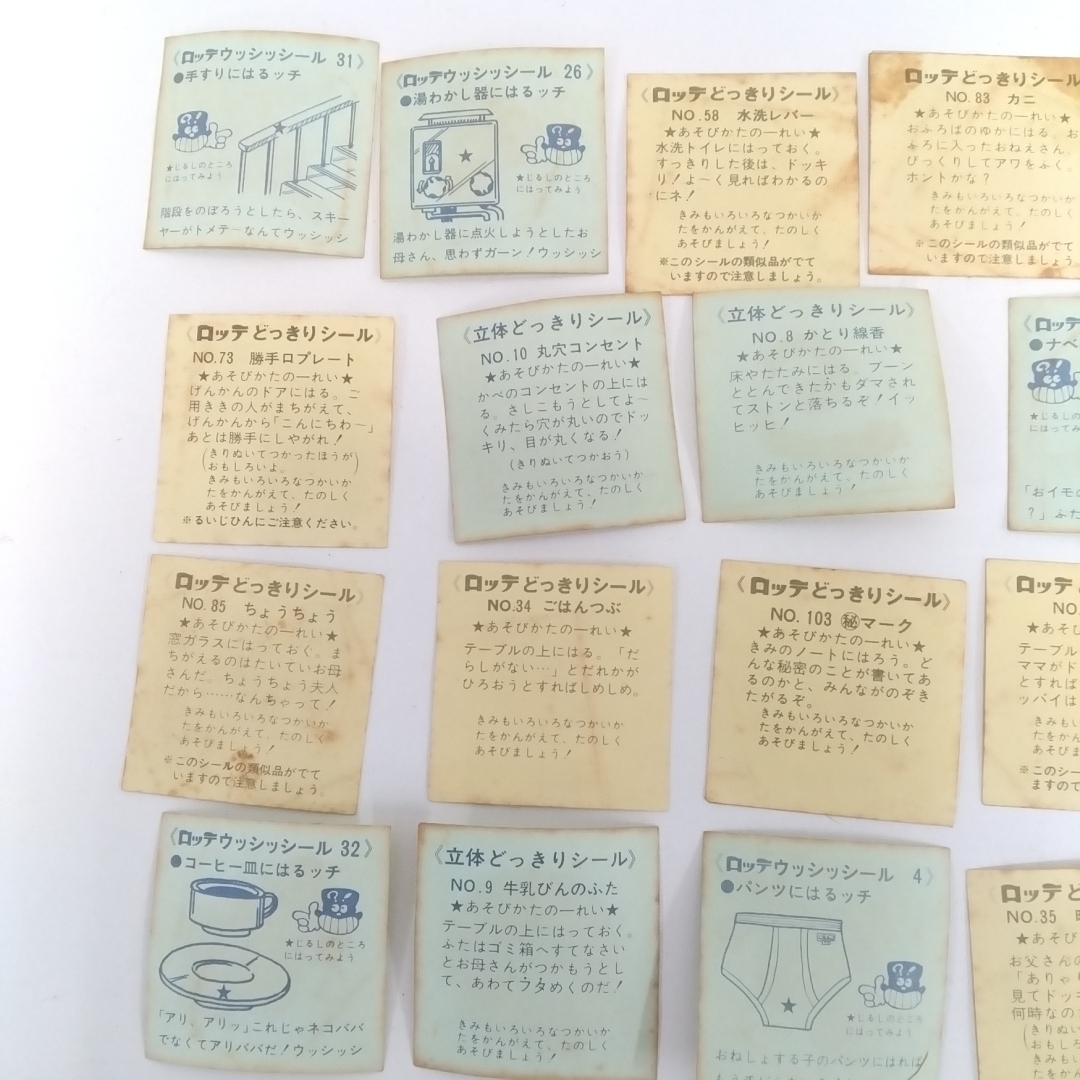 《ロッテウッシッシール 31》
●手すりにはるッチ
★じるしのところ
にはってみよう
階段をのぼろうとしたら、スキー
ヤーがトメテーなんてウッシッシ
《ロッテウッシッシール 26》
●湯わかし器にはるッチ
★じるしのところ
にはってみよう
湯わかし器に点火しようとしたお
母さん、思わずガーン!ウッシッシ
《ロッテどっきりシール》
NO.58 水洗レバー
★あそびかたの一れい★
水洗トイレにはっておく。
すっきりした後は、ドッキ
リ!よ〜く見ればわかるの
にネ!
きみもいろいろなつかいか
たをかんがえて、たのしく
あそびましょう!
※このシールの類似品がでて
いますので注意しましょう。
ロッテどっきりシール
NO.83 カニ
★あそびかたの一れい★
おふろばのゆかにはる。お
ふろに入ったおねえさん、
びっくりしてアワをふく。
ホントかな?
きみもいろいろなつかいか
たをかんがえて、たのしく
あそびましょう!
※このシールの類似品がでて
いますので注意しましょう。
《ロッテどっきりシール》
NO.73 勝手口プレート
★あそびかたの一れい★
げんかんのドアにはる。ご
用ききの人がまちがえて、
げんかんから「こんにちわ〜」
あとは勝手にしやがれ!
(きりぬいてつかったほうが
おもしろいよ。)
きみもいろいろなつかいか
たをかんがえて、たのしく
あそびましょう!
※るいじひんにご注意ください。
《立体どっきりシール》
NO.10 丸穴コンセント
★あそびかたの一れい★
かべのコンセントの上には
る。さしこもうとしてよ〜
くみたら穴が丸いのでドッ
キリ、目が丸くなる!
(きりぬいてつかおう)
きみもいろいろなつかいか
たをかんがえて、たのしく
あそびましょう!
《立体どっきりシール》
NO.8 かとり線香
★あそびかたの一れい★
床やたたみにはる。プーン
ととんできたかもダマされ
てストンと落ちるぞ!イッ
ヒッヒ!
きみもいろいろなつかいか
たをかんがえて、たのしく
あそびましょう!
《ロッテ
●ナベ
★じるしの
にはってみ
「おイモの
?」ふた
《ロッテどっきりシール》
NO.85 ちょうちょう
★あそびかたの一れい★
窓ガラスにはっておく。ま
ちがえるのはたいていお母
さんだ。ちょうちょう夫人
だから……なんちゃって!
きみもいろいろなつかいか
たをかんがえて、たのしく
あそびましょう!
※このシールの類似品がでて
いますので注意しましょう。
《ロッテどっきりシール》
NO.34 ごはんつぶ
★あそびかたの一れい★
テーブルの上にはる。「だ
らしがない…」とだれかが
ひろおうとすればしめしめ。
きみもいろいろなつかいか
たをかんがえて、たのしく
あそびましょう!
《ロッテどっきりシール》
NO.103 ㊙マーク
★あそびかたの一れい★
きみのノートにはろう。ど
んな秘密のことが書いてあ
るのかと、みんながのぞき
たがるぞ。
きみもいろいろなつかいか
たをかんがえて、たのしく
あそびましょう!
《ロッテ
NO.
★あそび
テーブル
ママがド
とすれば
ッパイは
きみも
たをかん
あそび
※このシー
ますので
《ロッテウッシッシール 32》
●コーヒー皿にはるッチ
★じるしのところ
にはってみよう
「アリ、アリッ」これじゃネコババ
でなくてアリババだ!ウッシッシ
《立体どっきりシール》
NO.9 牛乳びんのふた
★あそびかたの一れい★
テーブルの上にはっておく。
ふたはゴミ箱へすてなさい
とお母さんがつかもうとし
て、あわてフタめくのだ!
きみもいろいろなつかいか
たをかんがえて、たのしく
あそびましょう!
《ロッテウッシッシール 4》
●パンツにはるッチ
★じるしのところ
にはってみよう
おねしょする子のパンツにはれば
《ロッテど
NO.35
★あそび
お父さんの
「ありゃ
見てドッ
何時なの
(きりぬい
おもしろ
きみも
たをかん